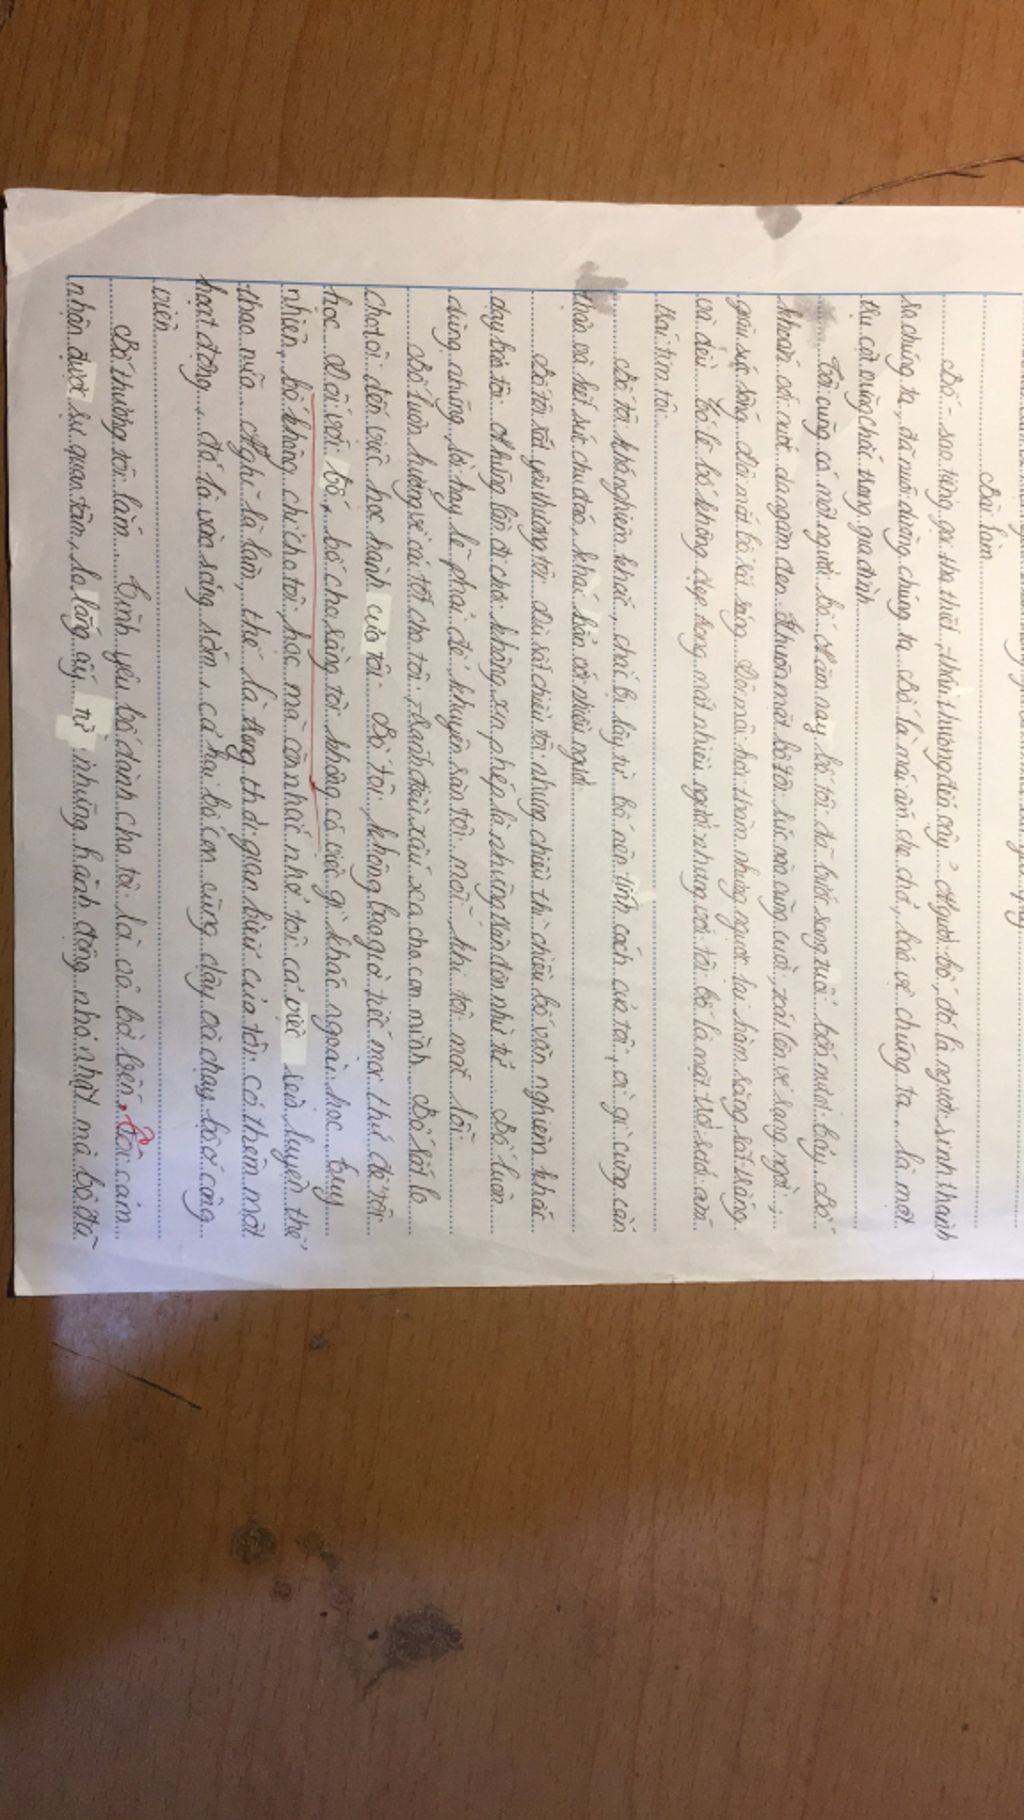 Bài làm
Bố - sao tiếng gọi tha thiết, thân thương đến vậy? Người bố, đó là người sinh thành
ra chúng ta, đã nuôi dưỡng chúng ta. Bố là mái ấm che chở, bảo vệ chúng ta, là một
trụ cột vững chắc trong gia đình.
Tôi cũng có một người bố. Năm nay bố tôi đã bước sang tuổi bốn mươi bảy. Bố
khoác với nước da ngăm đen. Khuôn mặt bố tôi lúc nào cũng cười, toát lên vẻ rạng ngời,
giàu sức sống. Đôi mắt bố rất sáng. Đôi môi hơi thâm nhưng ngược lại hàm răng rất trắng
và đều. Có lẽ bố không đẹp trong mắt nhiều người nhưng với tôi bố là một thứ sưởi ấm
trái tim tôi.
Bố tôi khá nghiêm khắc, chắc bị lây từ bố nên tính cách của tôi, cái gì cũng cẩn
thận và hết sức chu đáo, khác hẳn với nhiều người.
Bố tôi rất yêu thương tôi. Dù rất chiều tôi nhưng chiều thì chiều bố vẫn nghiêm khắc
dạy bảo tôi. Những lần đi chơi không xin phép là những lần đòn nhừ tử. Bố luôn
dùng những lời hay lẽ phải để khuyên răn tôi mỗi khi tôi mắc lỗi.
Bố luôn hướng về cái tốt cho tôi, tránh điều xấu xa cho con mình. Bố rất lo
cho tôi đến việc học hành của tôi. Bố tôi không bao giờ tiếc mọi thứ để tôi
học. Đối với bố, bố cho rằng tôi không có việc gì khác ngoài học. Tuy
nhiên, bố không chỉ cho tôi học mà còn nhắc nhở tôi cả việc rèn luyện thể
thao nữa. Nghĩ là làm, thế là trong thời gian biểu của tôi có thêm một
hoạt động, đó là vào sáng sớm, cả hai bố con cùng dậy và chạy bộ ở công
viên.
Bố thương tôi lắm. Tình yêu bố dành cho tôi là vô bờ bến. Tôi cảm
nhận được sự quan tâm, lo lắng ấy từ những hành động nhỏ nhặt mà bố đã